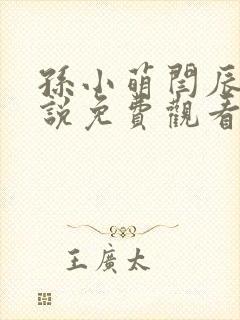 孫小萌閆辰
說免費觀看
王廣太